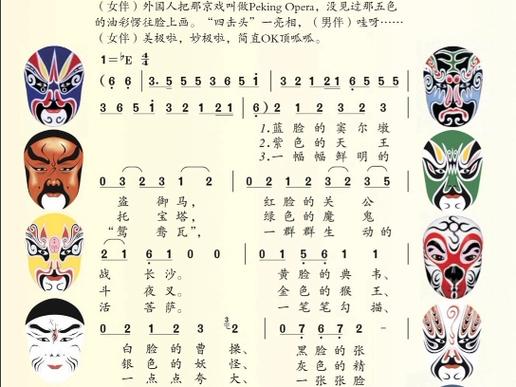 （女伴）外国人把那京戏叫做Peking Opera，没见过那五色
的油彩愣往脸上画。“四击头”一亮相，（男伴）哇呀……
（女伴）美极啦，妙极啦，简直OK顶呱呱。
1=♭E 4/4
(6 6 | 3. 5 5 5 3 6 5 1 | 3 2 1 2 1 6 5 5 5
3 6 5 1 3 2 1 2 1 | 6) 2 1 2 3 2 3
1.蓝脸的窦尔墩
2.紫色的天王
3.一幅幅鲜明的
0 3 2 3 1 2 | 0 1 2 1 0 2 3 5
盗御马， 红脸的关公
托宝塔， 绿色的魔鬼
“鸳鸯瓦”， 一群群生动的
2 1 6 1 0 0 | 0 5 3 5 0 5 3
战长沙。 黄脸的典韦、
斗夜叉。 金色的猴王、
活菩萨。 一笔笔勾描、
0 1 2 1 0 2 3 2 | 0 7 6 7 2 -
白脸的曹操、 黑脸的张
银色的妖怪、 灰色的精
一点点夸大、 一张张脸